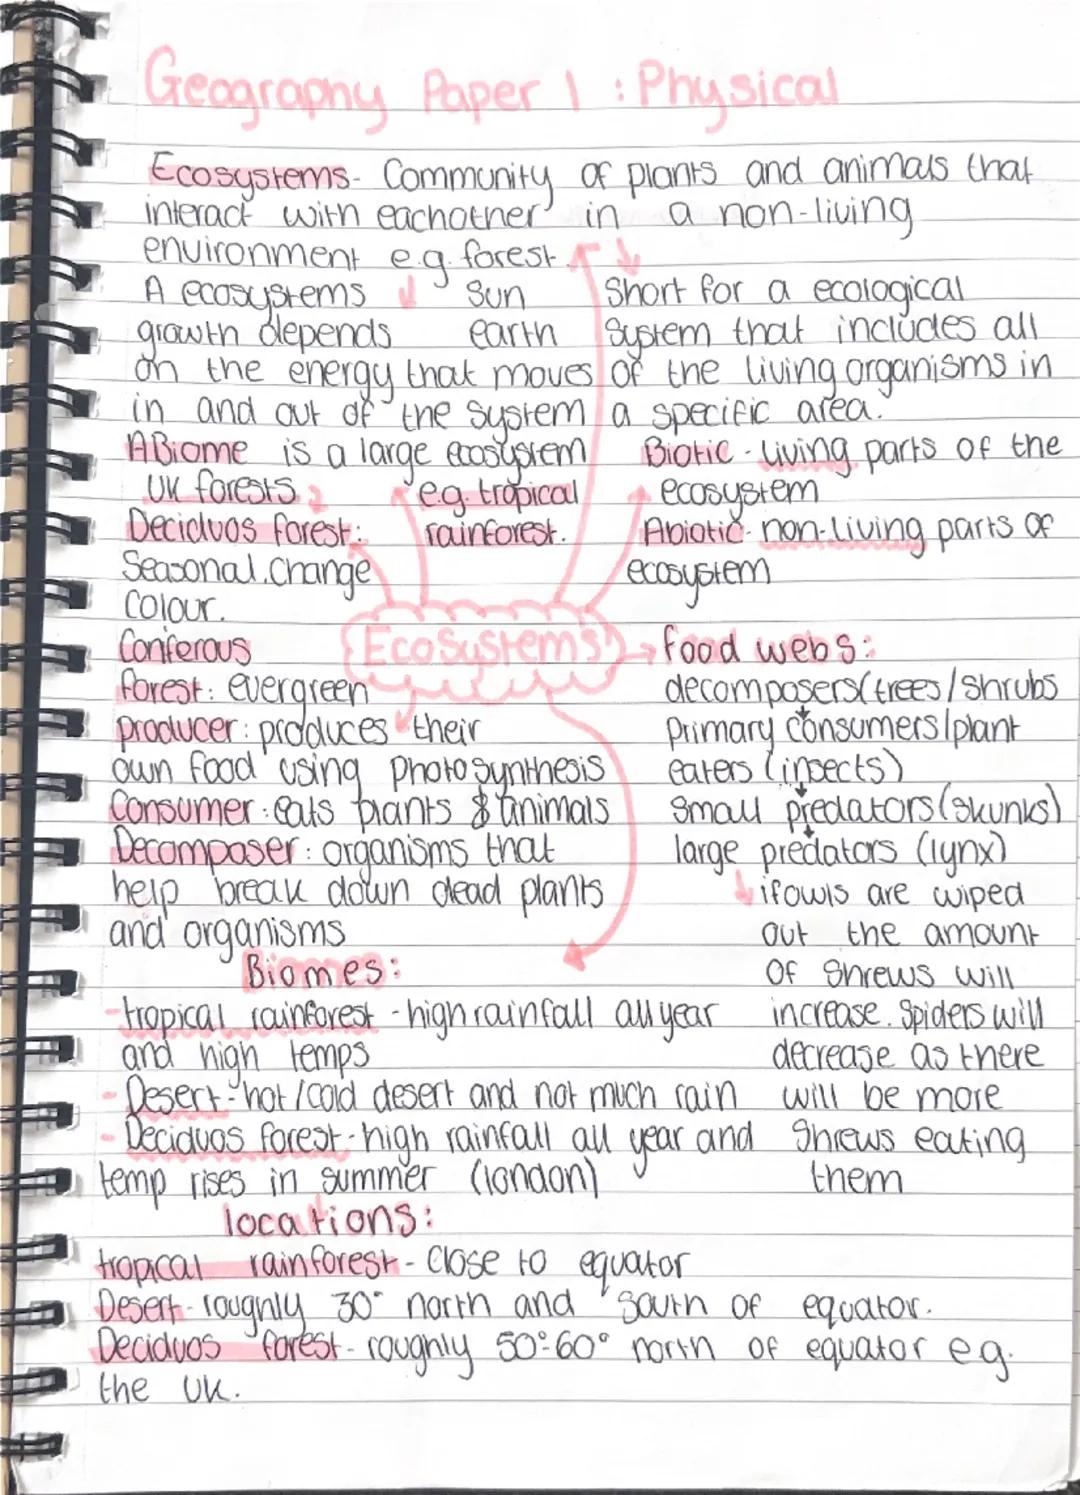 Geography Paper 1 : Physical
Ecosystems - Community of plants and animals that
interact with eachother in a non-living
environment e.g. forest.
A ecosystems
growth depends
on the energy that moves
in and out of the system
Sun
earth
Short for a ecological
System that includes all
of the living organisms in
a specific area.
A Biome is a large ecosystem
e.g. tropical
rainforest.
Biotic - living parts of the
ecosystem
Abiotic - non-living parts of
ecosystem
UK forests
Deciduos forest:
Seasonal. Change
Colour.
Coniferous
forest: evergreen
EcoSystems
Producer: produces their
own food using Photosynthesis
Consumer: eats plants & animals
Decomposer: organisms that
help break down dead plants
and organisms
food webs:
decomposers (trees/shrubs
Primary consumers/plant
eaters (insects)
Small predators (skunks)
large predators (lynx)
if owls are wiped
out the amount
Of Shrews will
increase. Spiders will
decrease as there
will be more
Shrews eating
them
Biomes:
- tropical rainforest - high rainfall all year
and high temps
- Desert - hot/cold desert and not much rain
- Deciduos forest - high rainfall all year and
temp rises in summer (london)
locations:
tropical rainforest - Close to equator
Desert - roughly 30° north and south of equator.
Deciduos forest - roughly 50°-60° north of equator e.g.
the UK.